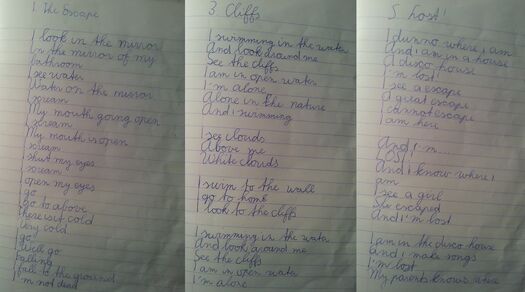 1. The Escape
I look in the mirror
In the mirror of my
bathroom
I see water
Water on the mirror
I scream
My mouth going open
I scream
My mouth is open
I scream
I shut my eyes
I scream
I open my eyes
I go
I go to above
there isit cold
Very cold
I go
I will go
Falling
I fall to the grouned
I'm not dead
3 Cliffs
I swimming in the water
And look around me
See the cliffs
I am in open water
I'm alone
Alone in the nature
And I swimming
I see clouds
Above me
White clouds
I swim to the wall
I go to home
I look to the cliffs
I swimming in the water
And look around me
See the cliffs
I am in open water
I'm alone
5 Lost!
I dunno where I am
And I am in a house
A disco house
I'm lost
I see a escape
A great escape
I can not escape
I am here
And I'm......
LOST
And I know where I
am
I see a girl
She escaped
And I'm lost
I am in the disco house
And I make songs
I'm lost
My parents knows where